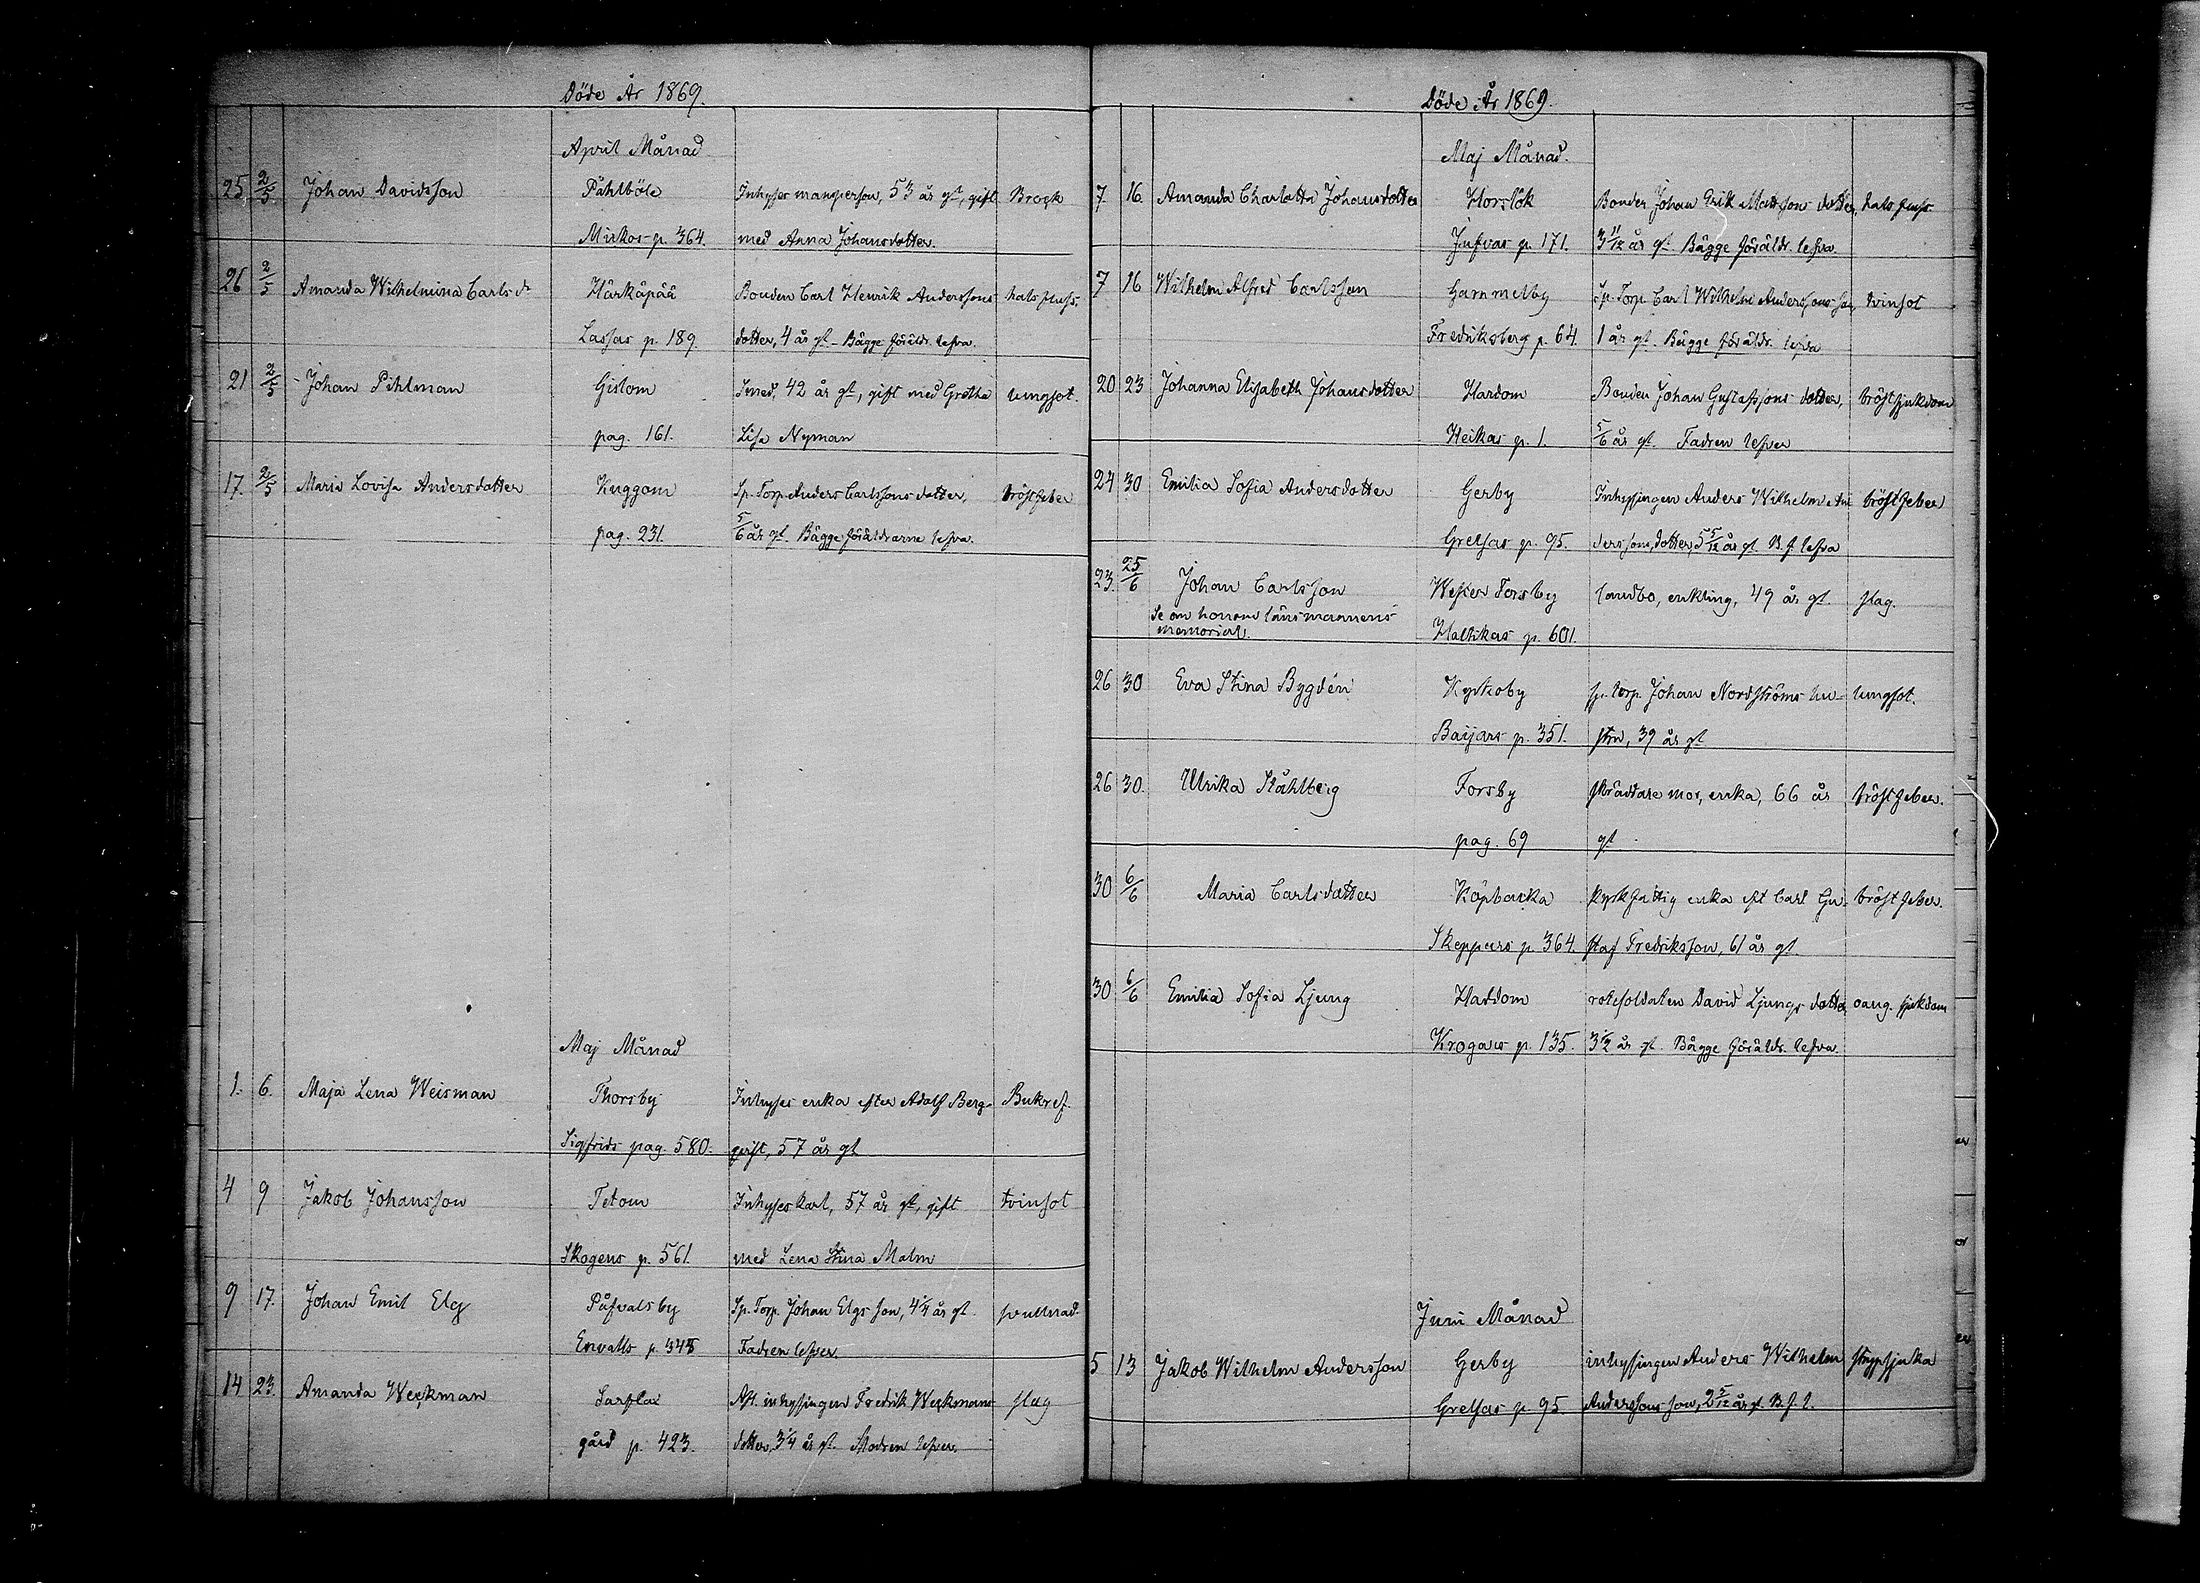 Döde År 1869.
April Månad
25 2/5 Johan Davidsson Påhlböle Inhyses mansperson, 53 år gl, gift Brock
Mickos p. 364. med Anna Johansdotter.
26 2/5 Amanda Wilhelmina Carlsdr Härkäpää Bonden Carl Henrik Anderssons halsfluss.
Lassas p. 189. dotter, 4 år gl. Bägge föräldr. lefva.
21 2/5 Johan Pihlman Gislom Smed, 42 år gl, gift med Gretha lungsot.
pag. 161. Lisa Nyman
17. 2/5 Maria Lovisa Andersdotter Kuggom Sp. Torp. Anders Carlssons dotter, bröstfeber
pag. 231. 5/6 år gl. Bägge föräldrarne lefva.
Maj Månad
1. 6. Maja Lena Weisman Thorsby Inhyses enka efter Adolf Berg- Bukref.
Sigfrids pag. 580. qvist, 57 år gl
4 9 Jakob Johansson Tetom Inhyseskarl, 57 år gl, gift tvinsot
Skogens p. 561. med Lena Stina Malm
9 17. Johan Emil Elg Påfvalsby Sp. Torp. Johan Elgs son, 4 1/4 år gl. svullnad.
Envalls p. 345 Fadren lefver.
14 23. Amanda Weckman Sarflax Afl. inhysingen Fredrik Weckmans slag
gård p. 423. dotter, 3 1/4 år gl. Modren lefver.
Döde År 1869.
Maj Månad.
7. 16. Amanda Charlotta Johansdotter Horslök Bonden Johan Erik Mattssons dotter, halsfluss
Jufvas p. 171. 3 11/12 år gl. Bägge föräldr. lefva.
7 16 Wilhelm Alfred Carlsson Gammelby Sp. Torp. Carl Wilhelm Anderssons son, tvinsot
Fredriksberg p. 64. 1 år gl. Bägge föräldr. lefva
20 23 Johanna Elisabeth Johansdotter Hardom Bonden Johan Gustafssons dotter, bröstsjukdom
Heikas p. 1. 5/6 år gl. Fadren lefver
24 30 Emilia Sofia Andersdotter Gerby Inhysingen Anders Wilhelm An- bröstfeber
Grelsas p. 95. derssons dotter, 5 5/12 år gl B. f. lefva
23. 25/6 Johan Carlsson Wester Forsby landbo, enkling, 49 år gl. slag.
Se om honom länsmannens
memorial. Haltikas p. 601.
26 30 Eva Stina Bygdén Kyrkoby sp. torp. Johan Nordströms hu- lungsot.
Baijars p. 351. stru, 39 år gl
26 30. Ulrika Ståhlberg Forsby skräddare mor, enka, 66 år bröstfeber.
pag. 69 gl
30 6/6 Maria Carlsdotter Köpbacka Kyrkfattig enka eft Carl Gu- bröstfeber.
Skeppars p. 364. staf Fredriksson, 61 år gl.
30 6/6 Emilia Sofia Ljung Hardom rotesoldaten David Ljungs dotter oang. sjukdom
Krogars p. 135. 3 1/2 år gl. Bägge föräldr. lefva.
Juni Månad
5 13 Jakob Wilhelm Andersson Gerby inhysingen Anders Wilhelm strypsjuka
Grelsas p. 95. Anderssons son, 2 5/12 år gl. B. f. l.